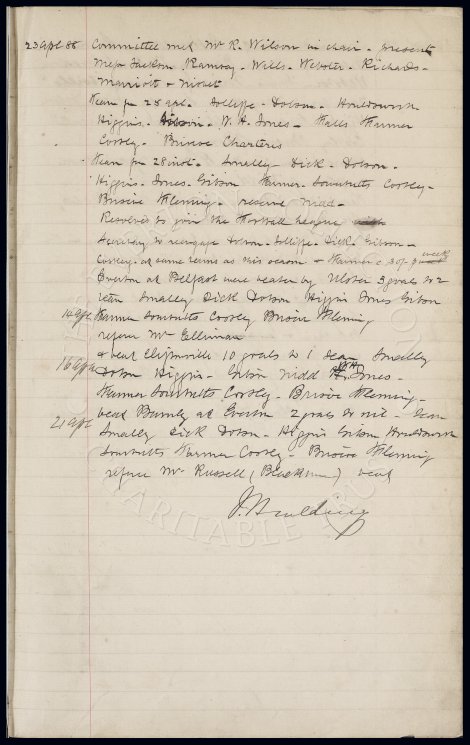 23 Apl 88 Committee met Mr R. Wilson in chair - present
Mess Jackson Ramsay - Wills - Webster - Richards -
Marriott + Nisbet
Team for 28 Apl. Jolliffe - Dobson - Houldsworth
Higgins - Gibson - W. H. Jones - Falls Farmer
Costley - Briscoe Charters
Team for 28 inst - Smalley Dick - Dobson -
Higgins - Jones - Gibson Farmer - Lowndes Costley -
Briscoe Fleming - reserve Nidd -
Resolved to join the Football League
Secretary to reengage Dobson - Jolliffe - Dick - Gibson -
Costley - at same terms as this season - Farmer @ 30/- p week
Everton at Belfast were beaten by Ulster 3 goals to 2
team Smalley Dick Dobson Higgins Jones Gibson
14 Apl. Farmer Lowndes Costley Briscoe Fleming
referee Mr Elliman
+ beat Cliftonville 10 goals to 1 team Smalley
16 Apl Dobson Higgins - Gibson Nidd W H Jones -
Farmer Lowndes Costley - Briscoe Fleming -
beat Burnley at Everton 2 goals to nil - team
21 Apl Smalley Dick Dobson - Higgins Gibson Houldsworth
Farmer Costley - Briscoe Fleming
referee Mr Russell (Blackburn)
J. Houlding
CHARITABLE